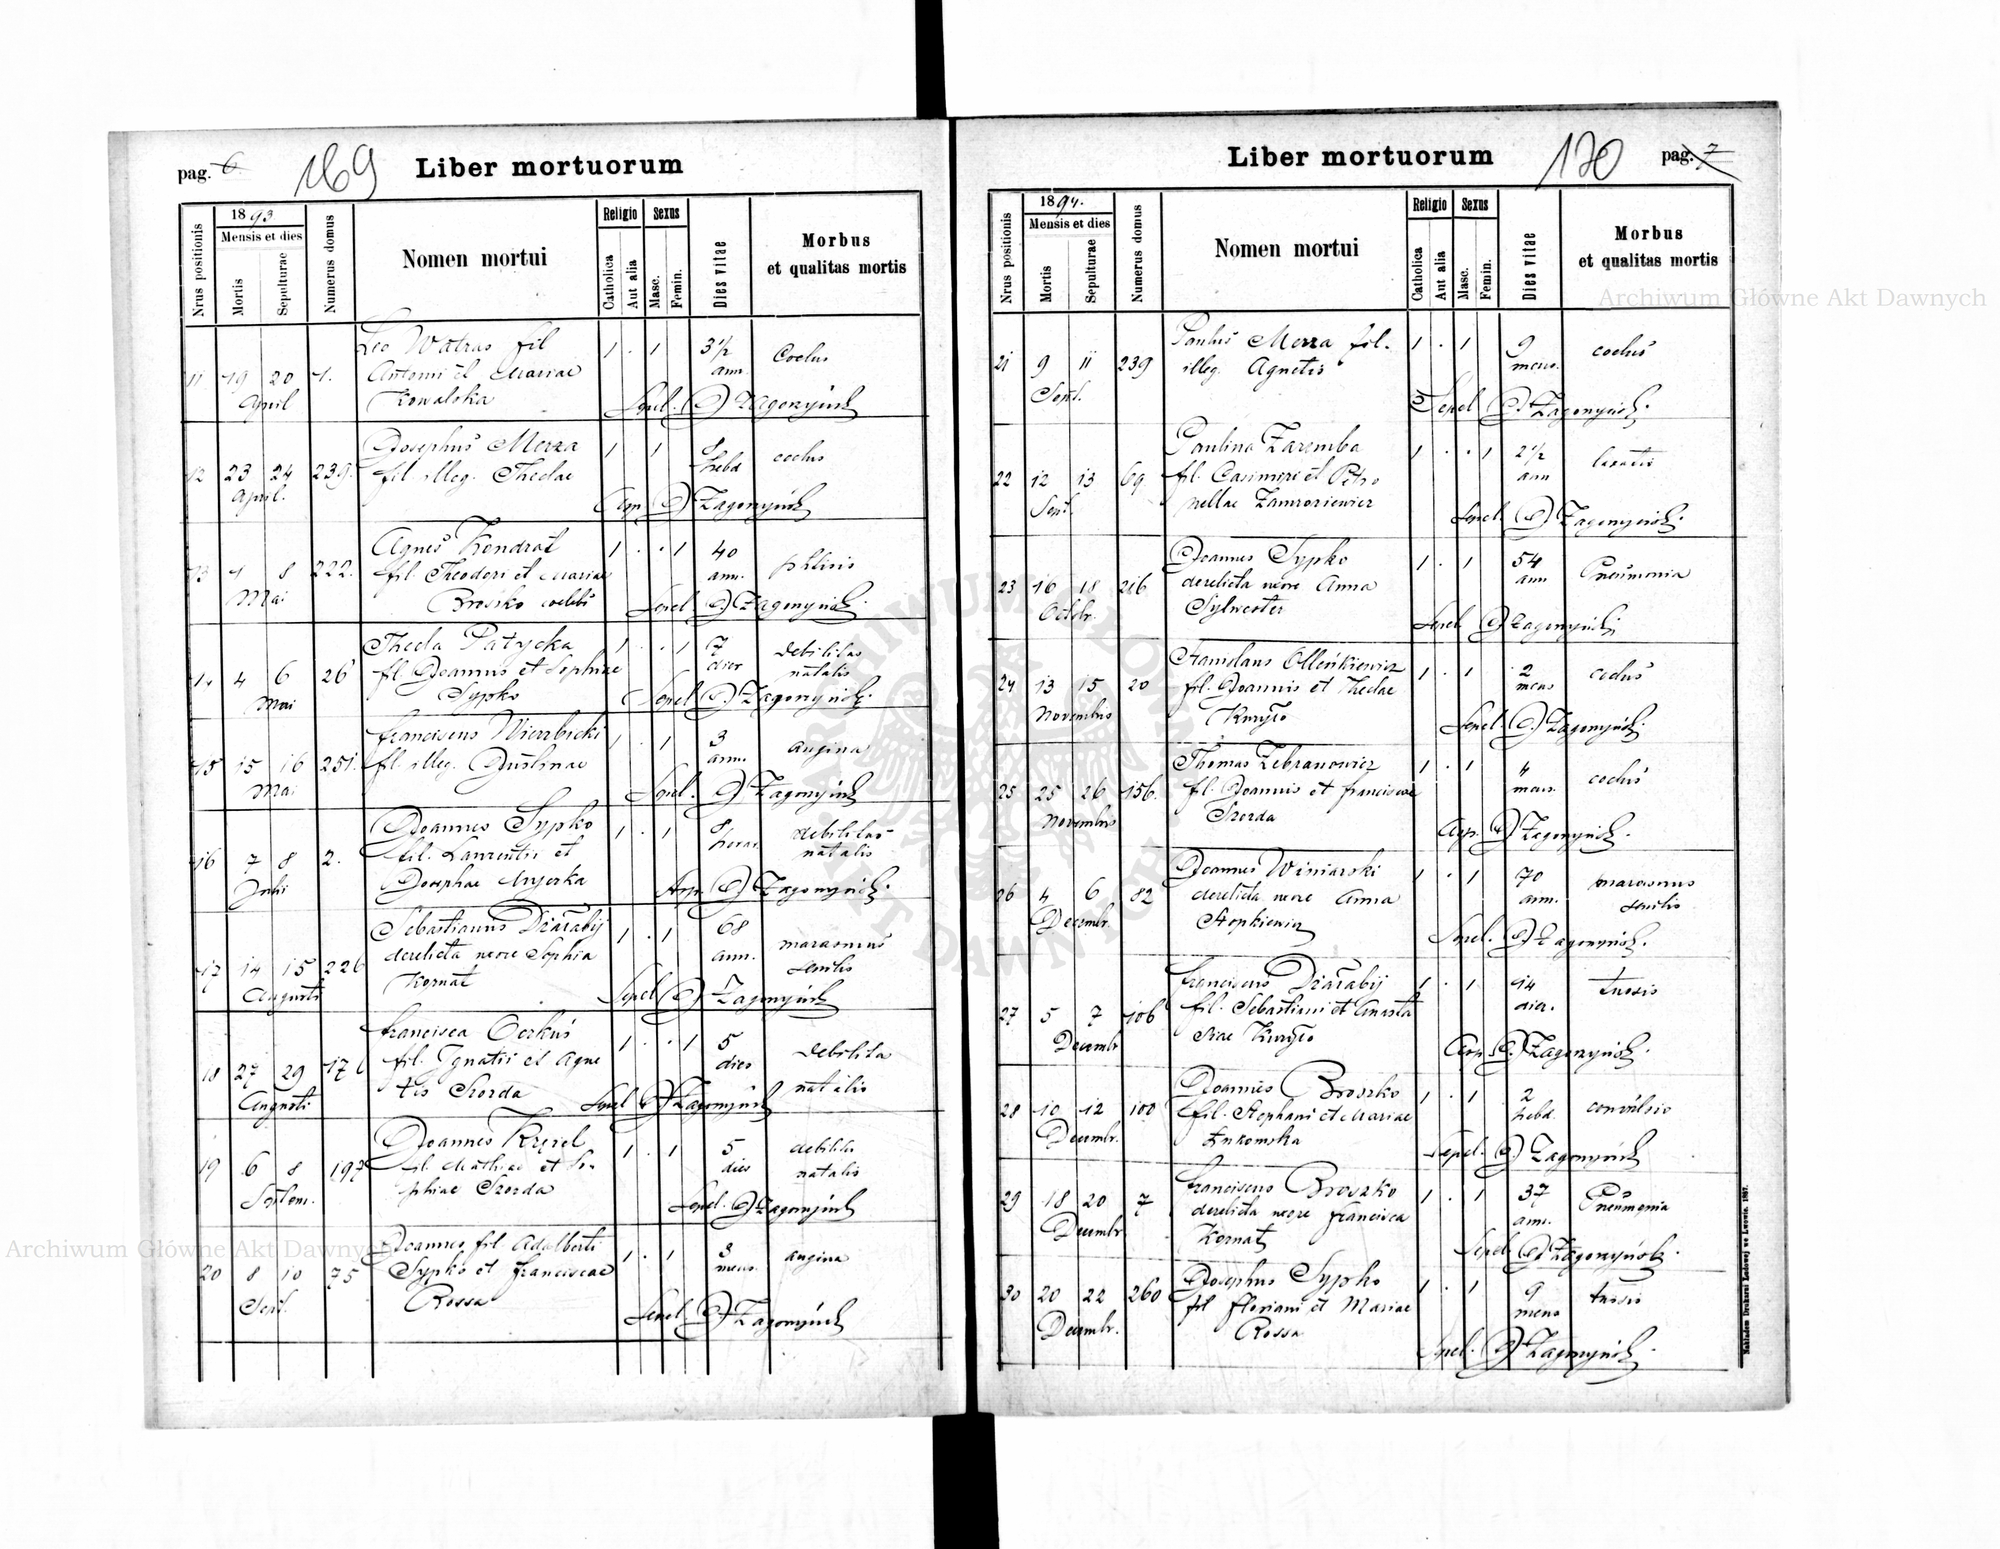 pag. 6
169
Liber mortuorum
Nrus positionis
1893
Mensis et dies
Mortis
Sepulturae
Numerus domus
Nomen mortui
Religio
Catholica
Aut alia
Sexus
Masc.
Femin.
Dies vitae
Morbus
et qualitas mortis
11 19 20 1. Leo Watras fil 1 . 1 3½ coclus
April Antonii et Mariae ann.
Kowalska Sepel.
12 23 24 239. Josephus Merza 1 1 8 coclus
April. fil illeg. Theclae hebd
13 1 8 222. Agnes Kondrat 1 . . 1 40 phtisis
Mai fil. Theodori et Mariae ann.
Broszko Sepel
14 4 6 26 Thecla Patycka 1 . . 1 7 debilitas
Mai fil Joannis et Sophiae dier natalis
Sypko Sepel
15 15 16 251. Franciscus Wierzbicki 1 . 1 3 angina
Mai fil. illeg. Justinae ann.
Sepel.
16 7 8 2. Joannes Sypko 1 . 1 8 debilitas
Julii fil. Laurentii et horar. natalis
Josephae
17 14 15 226 Sebastianus Dziaraby 1 . 1 68 marasmus
Augusti derelicta uxore Sophia ann. senilis
Kornat Sepel
18 27 29 176 Francisca Cerkus 1 . . 1 5 debilita
Augusti fil. Ignatii et Agne dies natalis
tis Szorda Sepel
19 6 8 197 Joannes Krzizel 1 . 1 5 debilita
Septem. fil. Mathiae et So- dies natalis
phiae Szorda Sepel.
20 8 10 75 Joannes fil Adalberti 1 . 1 3 angina
Sept. Sypko et Franciscae mens.
Rossa Sepel.
Liber mortuorum
170
pag. 7
Nrus positionis
1894.
Mensis et dies
Mortis
Sepulturae
Numerus domus
Nomen mortui
Religio
Catholica
Aut alia
Sexus
Masc.
Femin.
Dies vitae
Morbus
et qualitas mortis
21 9 11 239 Paulus Merza fil. 1 . 1 9 coclus
Sept. illeg. Agnetis mens.
Sepel
22 12 13 69. Paulina Zaremba 1 . . 1 2½
Sept. fil. Casimiri et Petro ann
nellae Zamroziewicz Sepel.
23 16 18 216 Joannes Sypko 1 . 1 54 Pneumonia
Octobr. derelicta uxore Anna ann
Sylwester Sepel
24 13 15 20 Stanislaus Olleńkiewicz 1 . 1 2 coclus
Novembris fil. Joannis et Theclae mens
Kuryło Sepel.
25 25 26 156. Thomas Zebranowicz 1 . 1 4 coclus
Novembris fil. Joannis et Franciscae mens.
Szorda
26 4 6 82 Joannes Winiarski 1 . 1 70 marasmus
Decembr. derelicta uxore Anna ann. senilis
Stopkiewicz Sepel.
27 5 7 106 Franciscus Dziaraby 1 . 1 14 tussis
Decembr fil. Sebastiani et Anasta dier.
siae Kuryło
28 10 12 100 Joannes Broszko 1 . 1 2 convulsio
Decembr. fil. Stephani et Mariae hebd.
Łukomska Sepel.
29 18 20 7 Franciscus Broszko 1 . 1 37 Pneumonia
Decembr derelicta uxore Francisca ann.
Kornat Sepel
30 20 22 260 Josephus Sypko 1 . 1 9 tussis
Decembr. fil Floriani et Mariae mens
Rossa Sepel.
Nakładem Drukarni Ludowej we Lwowie. 1887.
Archiwum Główne Akt Dawnych
Archiwum Główne Akt Dawnych
ARCHIWUM GŁÓWNE AKT DAWNYCH